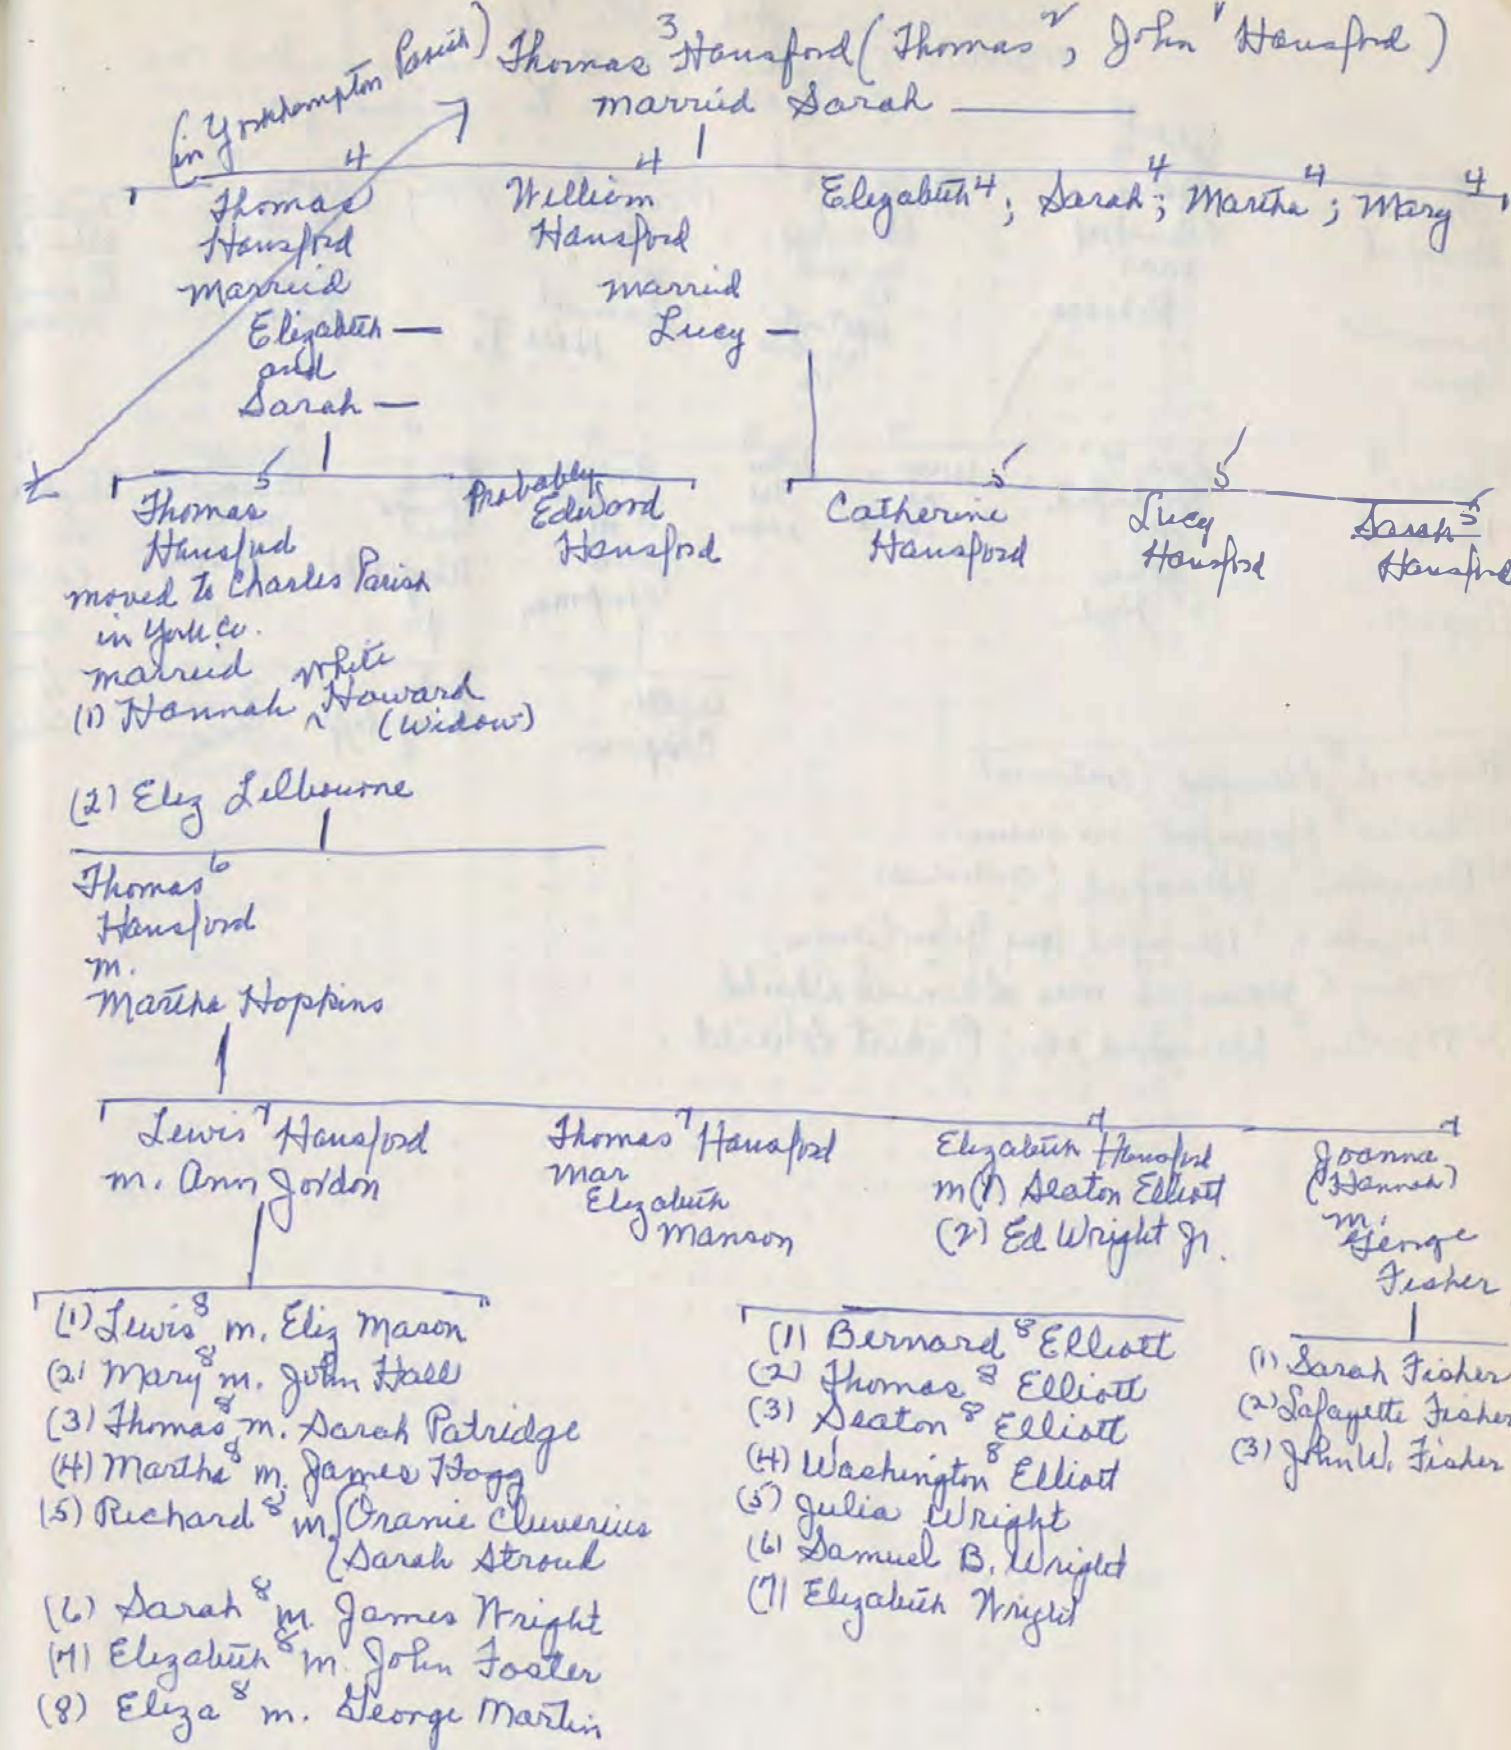 (in Yorkhampton Parish)
Thomas 3 Hansford (Thomas 2, John 1 Hansford)
married Sarah ———
Thomas 4
Hansford
married
Elizabeth —
and
Sarah —
William 4
Hansford
married
Lucy —
Elizabeth 4; Sarah 4; Martha 4; Mary 4
Thomas 5
Hansford
moved to Charles Parish
in York Co.
married White
(1) Hannah ^ Howard
(Widow)
(2) Eliz Lilbourne
Probably
Edward
Hansford
Catherine 5
Hansford
Lucy 5
Hansford
Sarah 5
Hansford
Thomas 6
Hansford
m.
Martha Hopkins
Lewis 7 Hansford
m. Ann Jordon
Thomas 7 Hansford
mar
Elizabeth
Manson
Elizabeth 7 Hansford
m (1) Seaton Elliott
(2) Ed Wright Jr.
Joanna 7
(Hannah)
m.
George
Fisher
(1) Lewis 8 m. Eliz Mason
(2) Mary 8 m. John Hall
(3) Thomas 8 m. Sarah Patridge
(4) Martha 8 m. James Hogg
(5) Richard 8 m. { Oranie Cluverius
{ Sarah Stroud
(6) Sarah 8 m. James Wright
(7) Elizabeth 8 m. John Foster
(8) Eliza 8 m. George Martin
(1) Bernard 8 Elliott
(2) Thomas 8 Elliott
(3) Seaton 8 Elliott
(4) Washington 8 Elliott
(5) Julia Wright
(6) Samuel B. Wright
(7) Elizabeth Wright
(1) Sarah Fisher
(2) Lafayette Fisher
(3) John W. Fisher